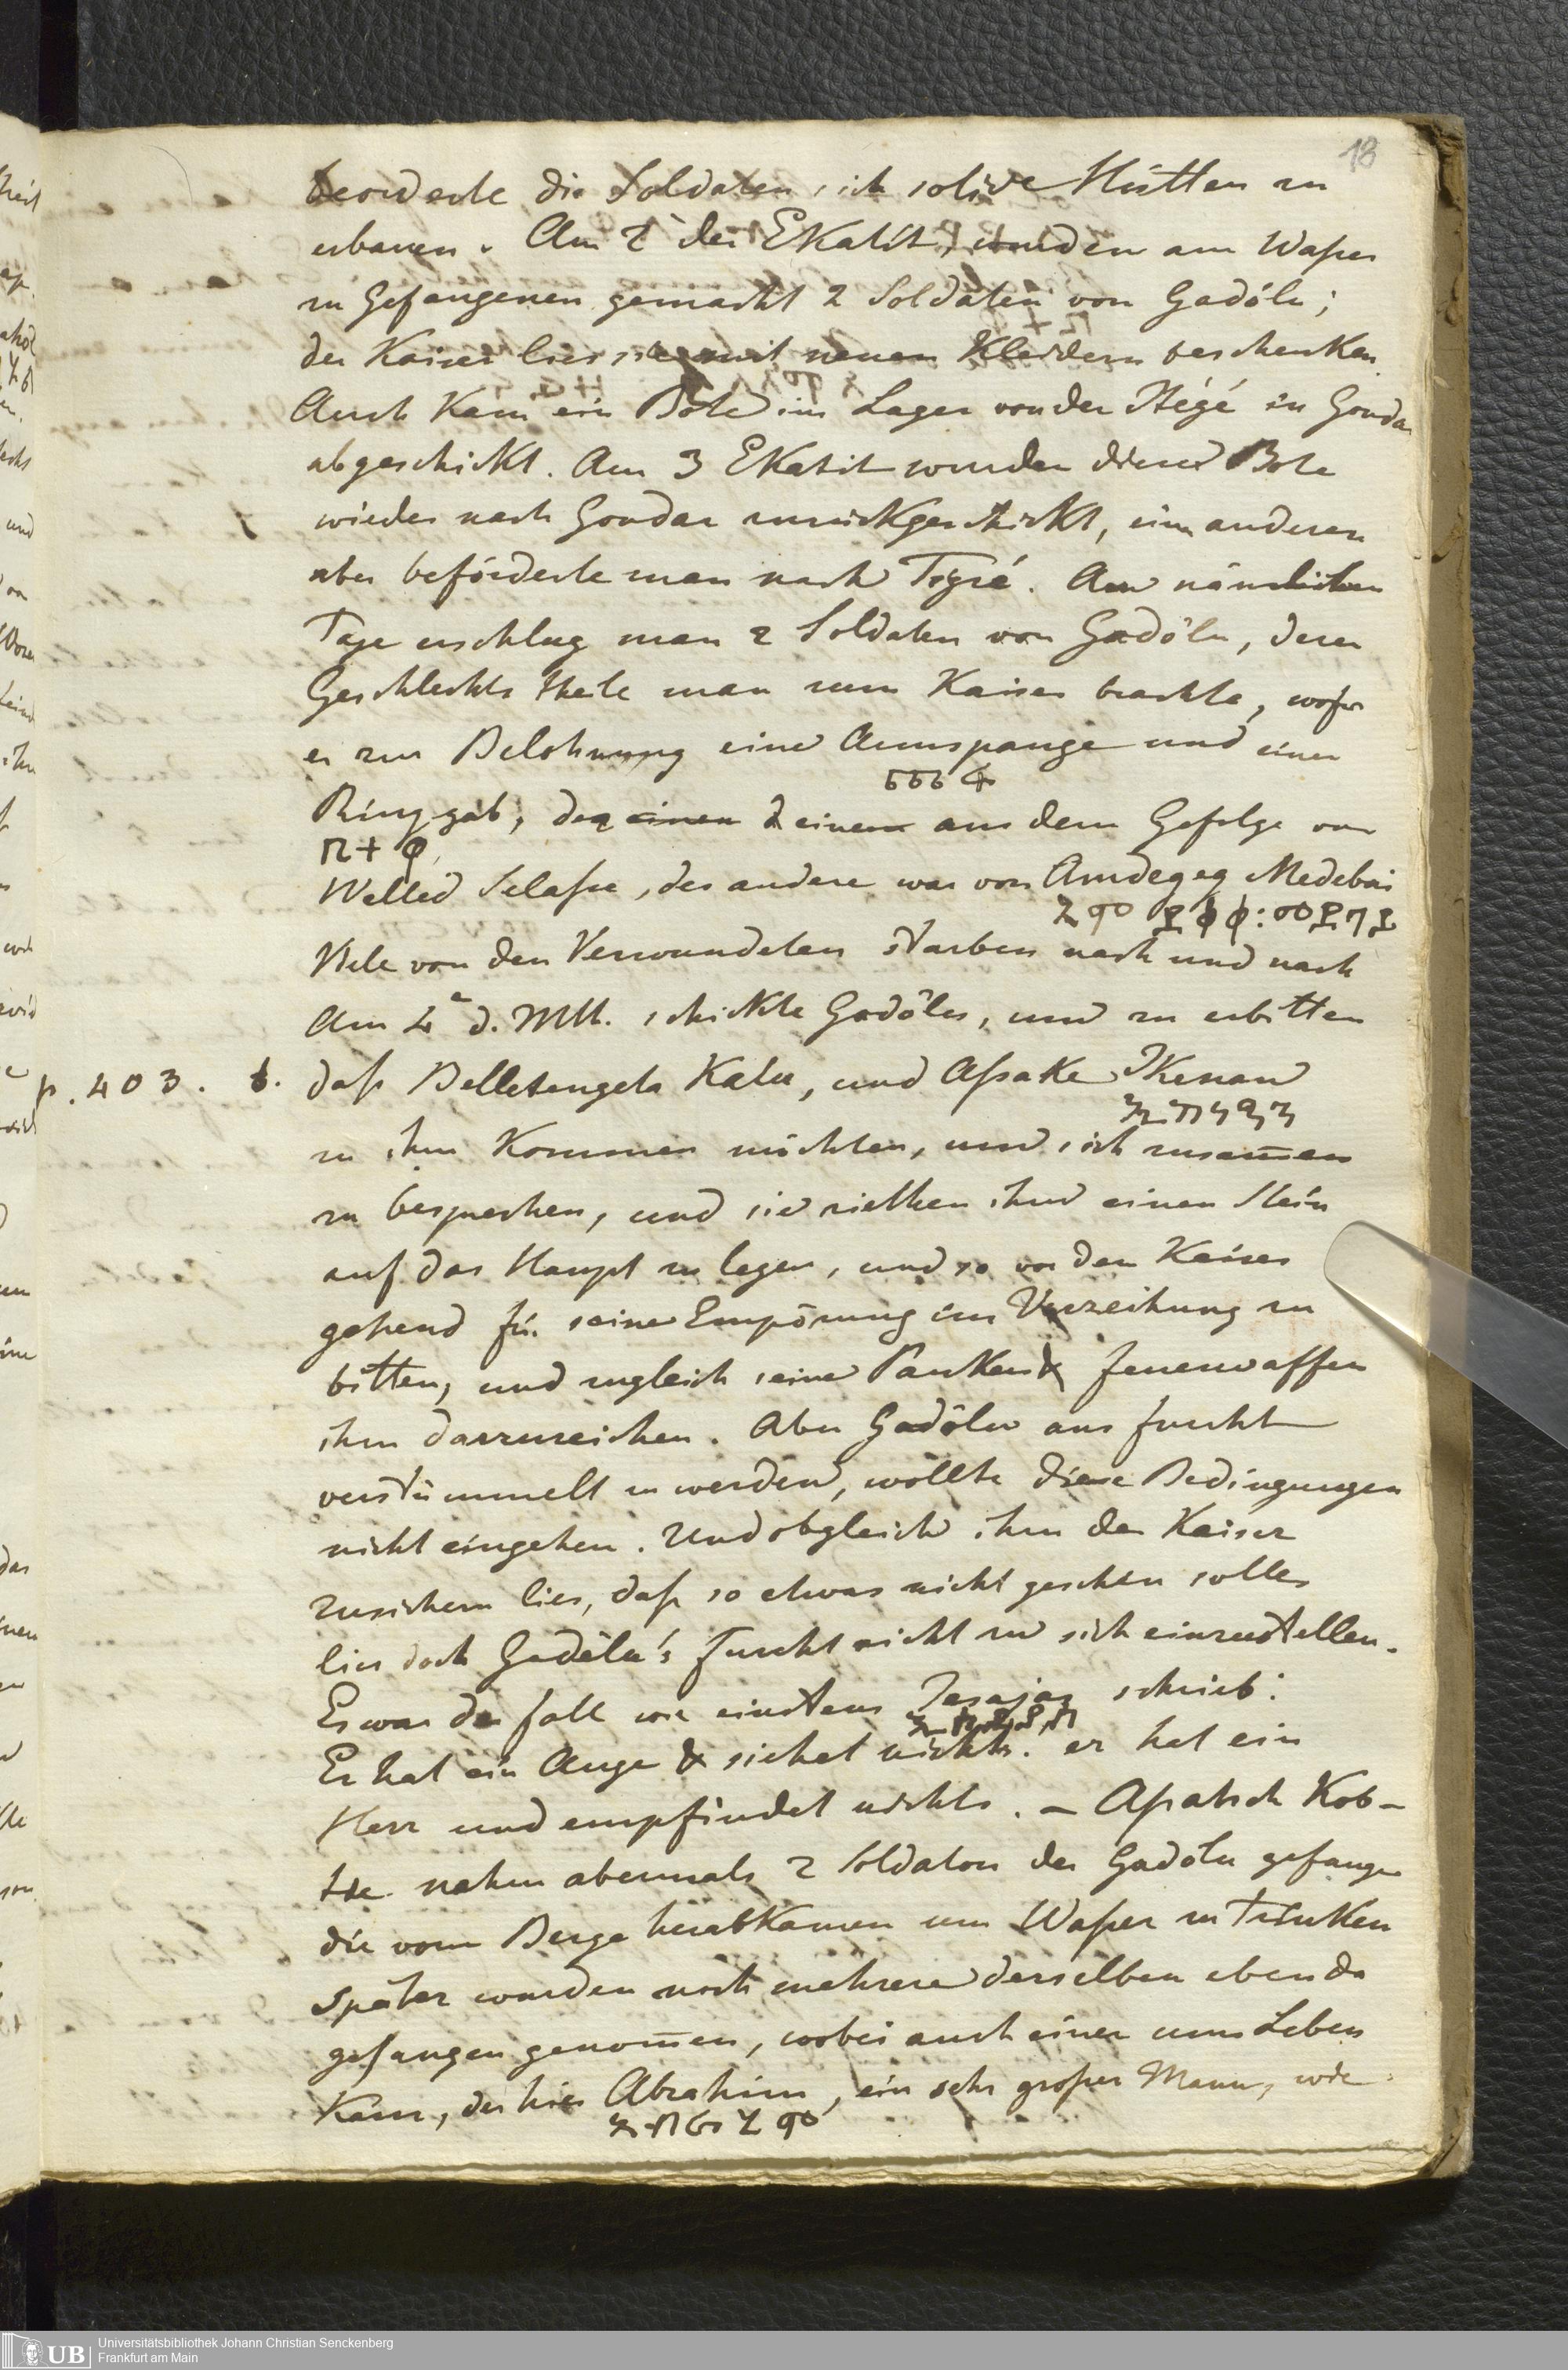 18
beorderte die Soldaten sich solide Hütten zu
erbauen. Am 2t der Ekatit, wurden am Waßer
zu Gefangenen gemacht 2 Soldaten von Gadölu;
der Kaiser lies sie mit neuen Kleidern beschenken.
Auch Kam ein Bote im Lager von der Itégé in Gondar
abgeschickt. Am 3 Ekatit wurden dieser Bote
wieder nach Gondar zurückgeschickt, einen anderen
aber beförderte man nach Tigré. Am nämlichen
Tage erschlug man 2 Soldaten von Gadölu, deren
Geschlechts theile man zum Kaiser brachte, wofür
er zur Belohnung eine Armspange und einen
Ring gab, der einen aus dem Gefolge von
Welled Selaße, der andere war von Amdegeg Medebai
Viele von den Verwundeten starben nach und nach
Am 4t d. Mtt. schickte Gadölu, und zu erbitten
p. 403. daß Belletengeta Kalu, und Aßake Ikenan
zu ihm Kommen möchten, und sich zusam̅en
zu besprechen, und sie riethen ihm einen Stein
auf das Haupt zu legen, und so vor den Kaiser
gehend für seine Empörung um Verzeihung zu
bitten, und zugleich seine Pauken & Feuerwaffen
ihm darzureichen. Aber Gadölu aus Furcht
verstümmelt zu werden, wollte diese Bedingungen
nicht eingehen. Und obgleich ihm der Kaiser
zusichern lies, daß so etwas nicht geschehen solle
lies doch Gadölu's Furcht nicht zu sich einzustellen.
Es war der Fall wie einstens Jesajas schrieb:
Er hat ein Auge & siehet nichts. er hat ein
Herz und empfindet nichts. – Aßatsch Kob-
tte nahm abermals 2 Soldaten des Gadölu gefangen
die vom Berge herabkamen um Waßer zu trinken
später wurden noch mehrere derselben ebenda
gefangen genom̅en, wobei auch einer ums Leben
Kam, der hies Abrahim, ein sehr großer Mann, wie
Universitätsbibliothek Johann Christian Senckenberg
Frankfurt am Main
UB